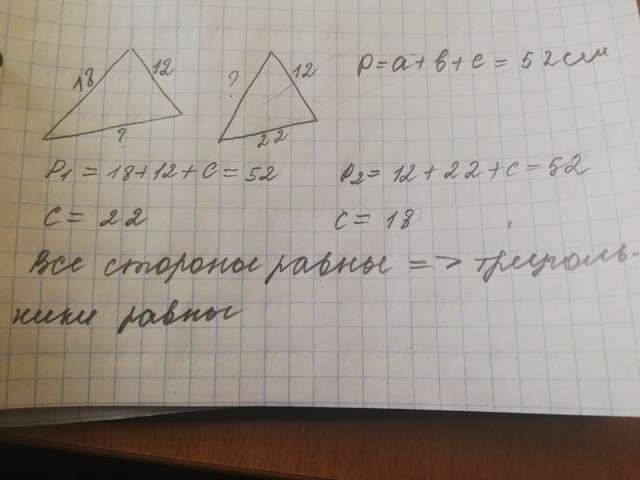 18 12 ? 12 P = a + b + c = 52 см
? 22
P1 = 18 + 12 + c = 52 P2 = 12 + 22 + c = 52
c = 22 c = 18
Все стороны равны => треуголь-
ники равны